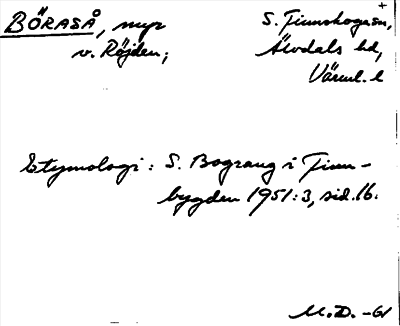 BÖRASÅ, myr S. Finnskogasn,
v. Röjden; Älvdals hd,
Värml. l
Etymologi: S. Bograng i Finn-
bygden 1951:3, sid. 16.
M.D. -61